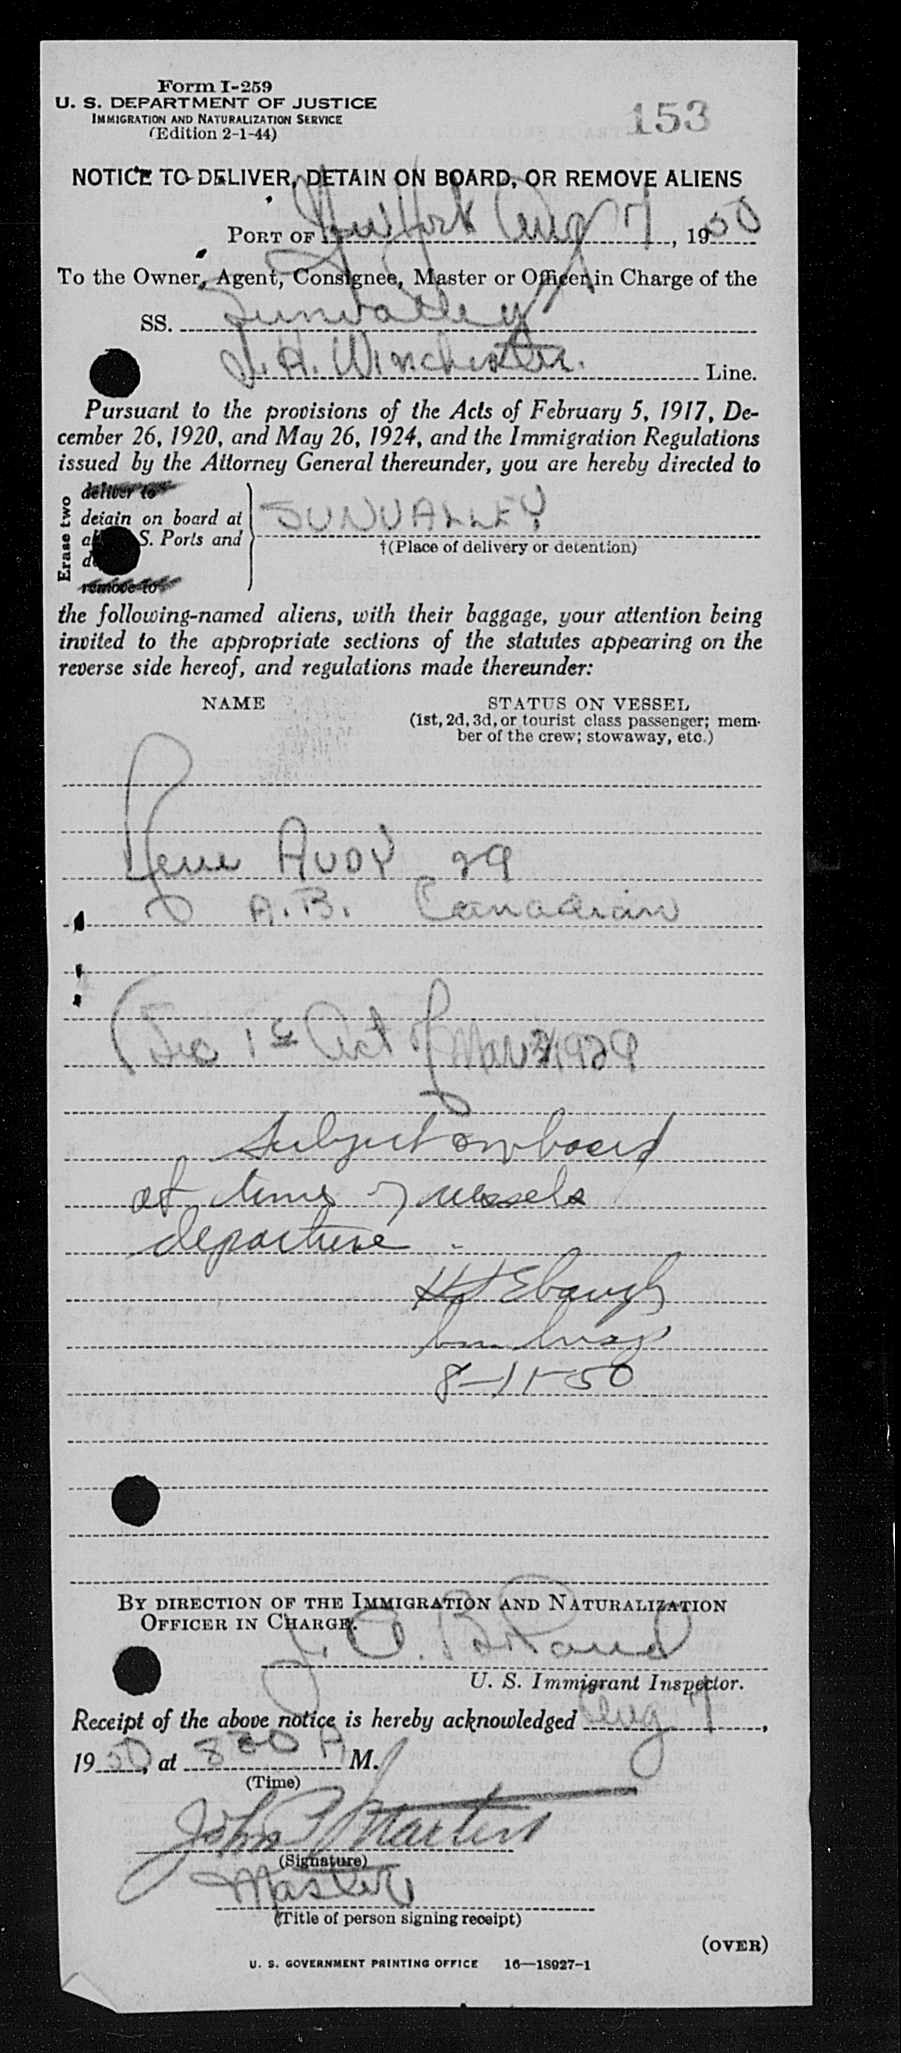 Form I-259
U. S. DEPARTMENT OF JUSTICE
IMMIGRATION AND NATURALIZATION SERVICE
(Edition 2-1-44)
153
NOTICE TO DELIVER, DETAIN ON BOARD, OR REMOVE ALIENS
PORT OF New York Aug 7, 1950
To the Owner, Agent, Consignee, Master or Officer in Charge of the
SS. Sunvalley
J. H. Winchester. Line.
Pursuant to the provisions of the Acts of February 5, 1917, De-
cember 26, 1920, and May 26, 1924, and the Immigration Regulations
issued by the Attorney General thereunder, you are hereby directed to
Erase two
deliver to
detain on board at
S. Ports and
remove to
SUNVALLEY
†(Place of delivery or detention)
the following-named aliens, with their baggage, your attention being
invited to the appropriate sections of the statutes appearing on the
reverse side hereof, and regulations made thereunder:
NAME
STATUS ON VESSEL
(1st, 2d, 3d, or tourist class passenger; mem-
ber of the crew; stowaway, etc.)
Rene AUDY 29
A.B. Canadian
(Sec 1 Act of Mar 1929
Subject on board
at time of vessels
departure.
Ebaugh
8-11-50
BY DIRECTION OF THE IMMIGRATION AND NATURALIZATION
OFFICER IN CHARGE.
J.
U. S. Immigrant Inspector.
Receipt of the above notice is hereby acknowledged Aug 7,
1950, at 830 A M.
(Time)
John P Martin
(Signature)
Master
(Title of person signing receipt)
(OVER)
U. S. GOVERNMENT PRINTING OFFICE 16—18927-1